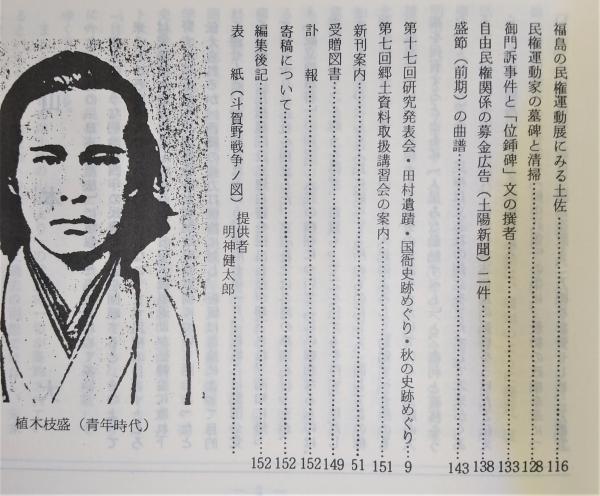 福島の民権運動展にみる土佐……116
民権運動家の墓碑と清掃……128
御門訴事件と「位䤹碑」文の撰者……133
自由民権関係の募金広告（土陽新聞）二件……138
盛節（前期）の曲譜……143
第十七回研究発表会・田村遺蹟・国衙史跡めぐり・秋の史跡めぐり……9
第七回郷土資料取扱講習会の案内……151
新刊案内……51
受贈図書……149
訃　報……152
寄稿について……152
編集後記……152
表　紙（斗賀野戦争ノ図）　提供者
明神健太郎
植木枝盛（青年時代）